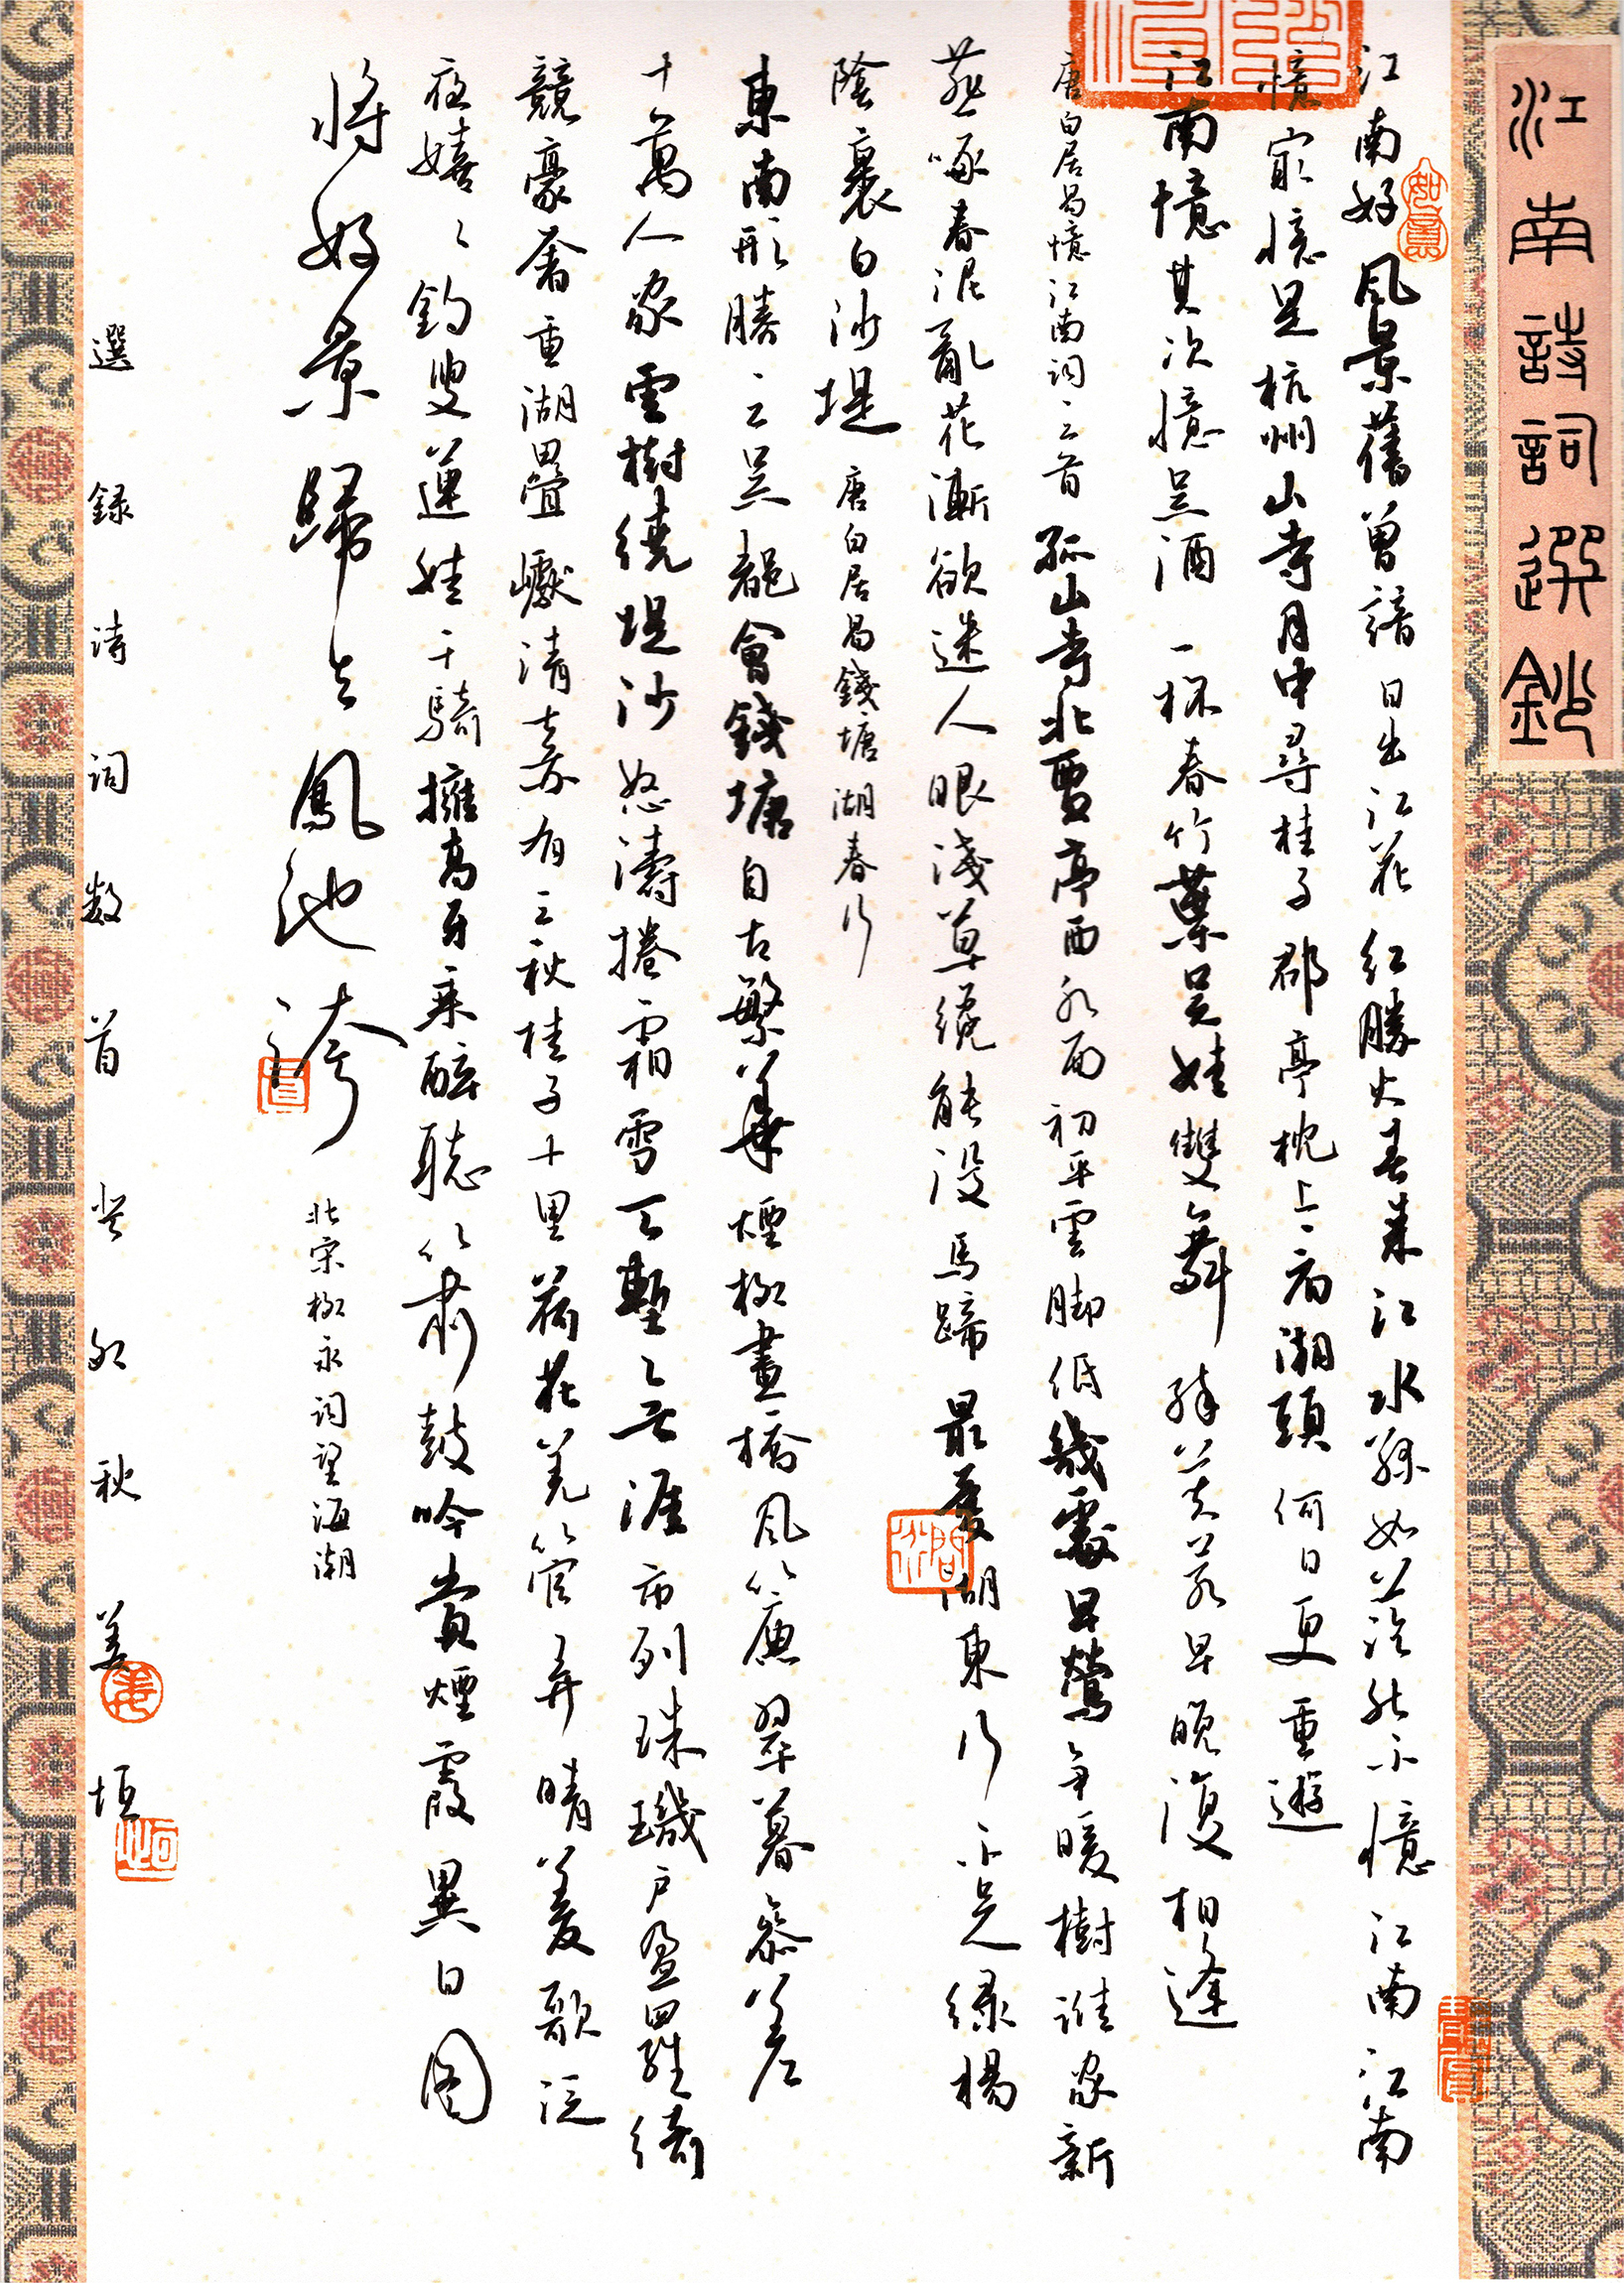 江南詩詞選鈔
江南好風景舊曾諳日出江花紅勝火春來江水綠如藍能不憶江南江南
憶最憶是杭州山寺月中尋桂子郡亭枕上看潮頭何日更重遊
江南憶其次憶吳酒一杯春竹葉吳娃雙舞醉芙蓉早晚復相逢
唐白居易憶江南詞三首孤山寺北賈亭西水面初平雲腳低幾處早鶯爭暖樹誰家新
燕啄春泥亂花漸欲迷人眼淺草纔能沒馬蹄最愛湖東行不足綠楊
陰裏白沙堤唐白居易錢塘湖春行
東南形勝三吳都會錢塘自古繁華煙柳畫橋風簾翠幕參差
十萬人家雲樹繞堤沙怒濤捲霜雪天塹無涯市列珠璣戶盈羅綺
競豪奢重湖疊巘清嘉有三秋桂子十里荷花羌管弄晴菱歌泛
夜嬉嬉釣叟蓮娃千騎擁高牙乘醉聽簫鼓吟賞煙霞異日圖
將好景歸去鳳池誇北宋柳永詞望海潮
選録诗词数首 秋姜垣
如意
姜
垣